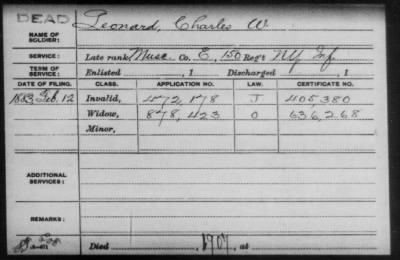 DEAD
Leonard, Charles W.
NAME OF SOLDIER:
SERVICE: Late rank, Musc. Co. E, 150 Reg't NY Inf
TERM OF SERVICE: Enlisted , 1 Discharged , 1
DATE OF FILING. CLASS. APPLICATION NO. LAW. CERTIFICATE NO.
1883, Feb. 12 Invalid, 472,178 J 405,380
Widow, 878,423 O 636,268
Minor,
ADDITIONAL SERVICES:
REMARKS:
Died 1907, at